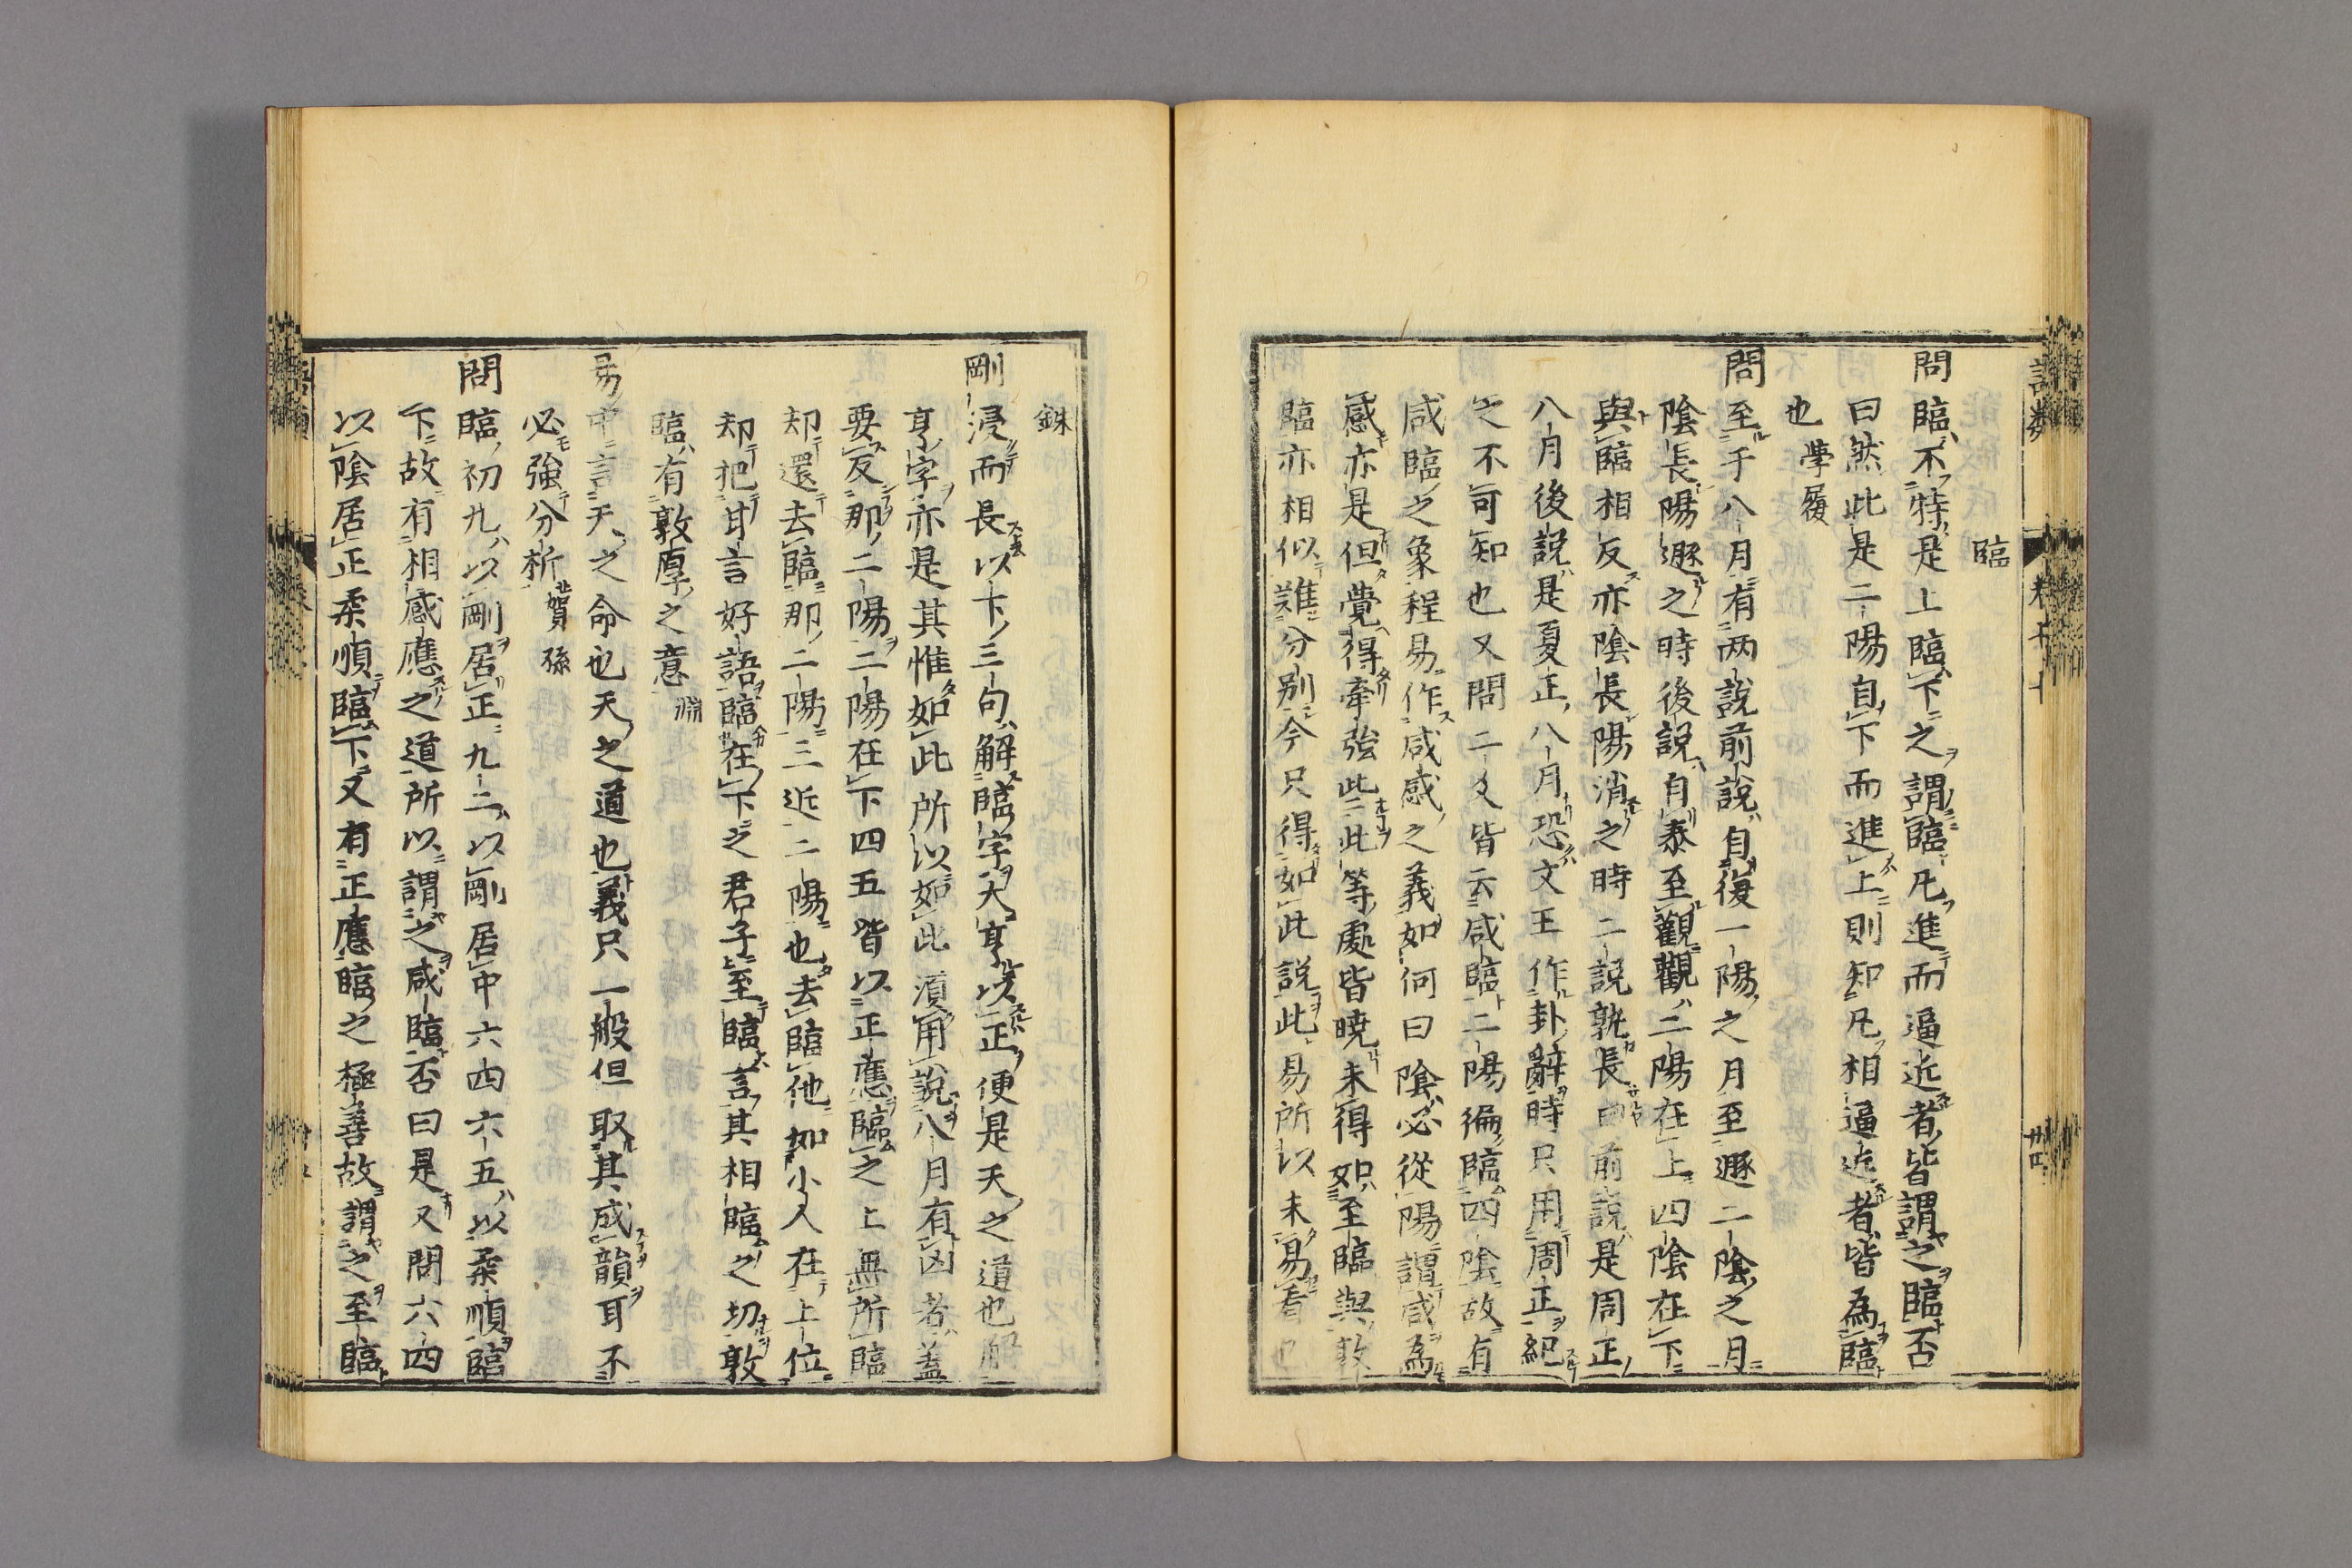 臨
問臨不特是上臨下之謂臨凡進而逼近者皆謂之臨否
曰然此是二陽自下而進上則知凡相逼近者皆為臨
也 學履
問至于八月有两說前說自復一陽之月至遯二陰之月
陰長陽遯之時後說自泰至觀觀二陽在上四陰在下
與臨相反亦陰長陽消之時二說孰長曰前說是周正
八月後說是夏正八月恐文王作卦辭時只用周正紀
之不可知也又問二爻皆云咸臨二陽徧臨四陰故有
咸臨之象程易作咸感之義如何曰陰必從陽謂咸為
感亦是但覺得牽強此二此等處皆曉未得如至臨與敦
臨亦相似難分别今只得如此說此易所以未易看也
銖
剛浸而長以下三句解臨字大亨以正便是天之道也解
亨字亦是其惟如此所以如此湏用說八月有凶者蓋
要反那二陽二陽在下四五皆以正應臨之上無所臨
却還去臨那二陽三近二陽也去臨他如小人在上位
却把甘言好語臨在下之君子至臨言其相臨之切敦
臨有敦厚之意 淵
易中言天之命也天之道也義只一般但取其成韻耳不
必強分析 賀孫
問臨初九以剛居正九二以剛居中六四六五以柔順臨
下故有相感應之道所以謂之咸臨否曰是又問六四
以陰居正柔順臨下又有正應臨之極善故謂之至臨